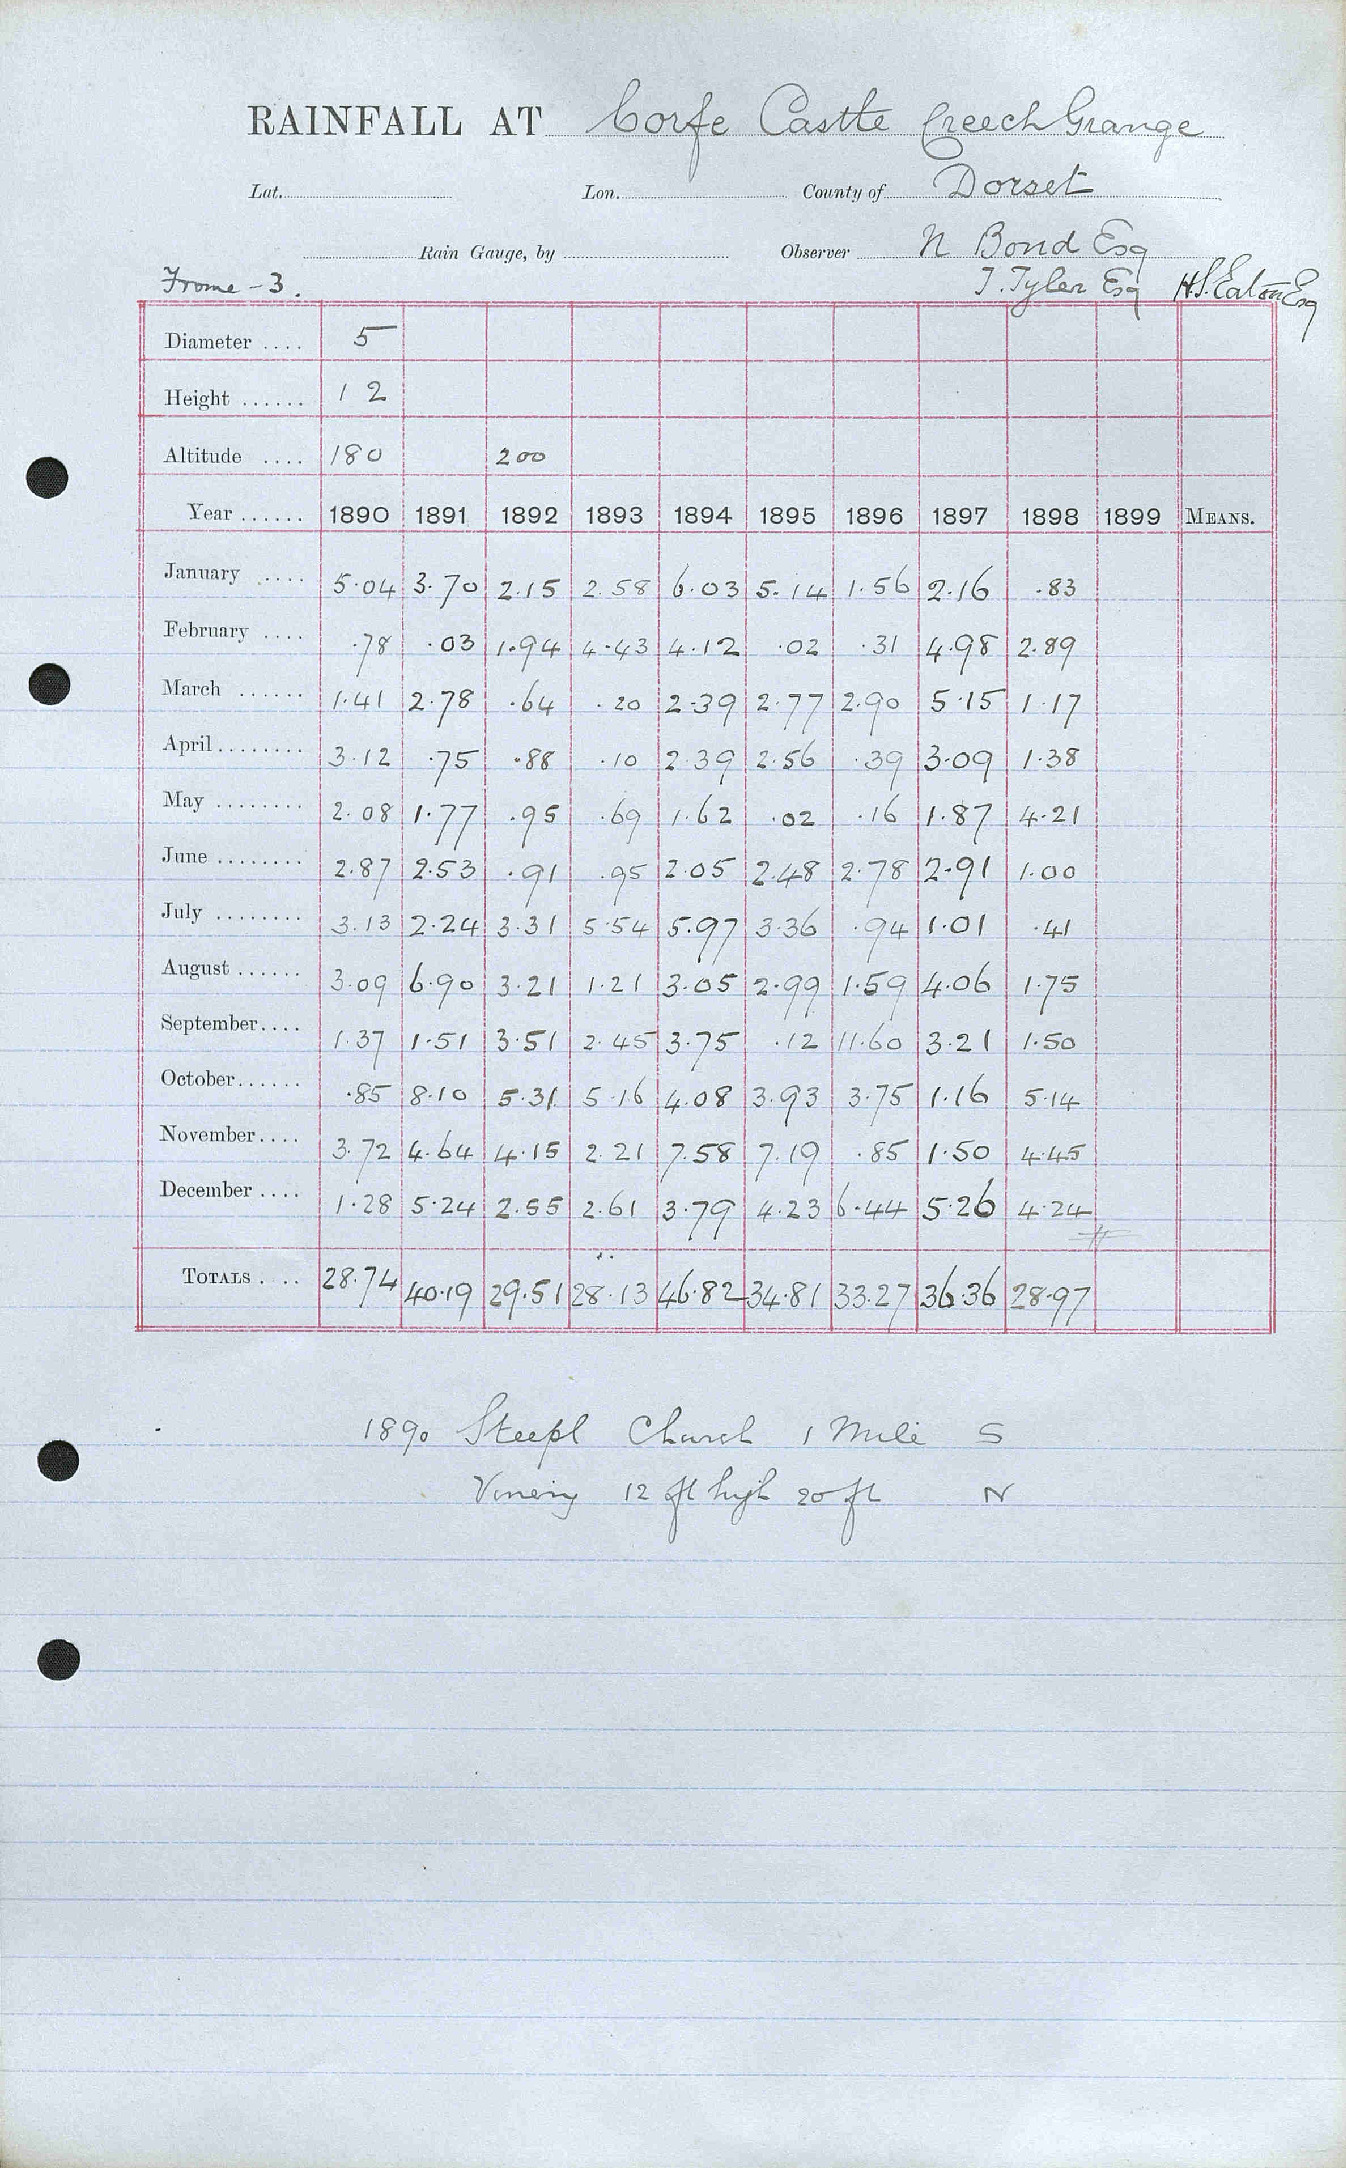 RAINFALL AT Corfe Castle Creech Grange
Lat. Lon. County of Dorset
Rain Gauge, by Observer N Bond Esq
Frome - 3. T. Tyler Esq H.S. Eaton Esq
Diameter .... 5
Height ...... 12
Altitude .... 180 200
Year ...... 1890 1891 1892 1893 1894 1895 1896 1897 1898 1899 MEANS.
January ..... 5.04 3.70 2.15 2.58 6.03 5.14 1.56 2.16 .83
February .... .78 .03 1.94 4.43 4.12 .02 .31 4.98 2.89
March ...... 1.41 2.78 .64 .20 2.39 2.77 2.90 5.15 1.17
April ........ 3.12 .75 .88 .10 2.39 2.56 .39 3.09 1.38
May ........ 2.08 1.77 .95 .69 1.62 .02 .16 1.87 4.21
June ........ 2.87 2.53 .91 .95 2.05 2.48 2.78 2.91 1.00
July ........ 3.13 2.24 3.31 5.54 5.97 3.36 .94 1.01 .41
August ...... 3.09 6.90 3.21 1.21 3.05 2.99 1.59 4.06 1.75
September.... 1.37 1.51 3.51 2.45 3.75 .12 11.60 3.21 1.50
October...... .85 8.10 5.31 5.16 4.08 3.93 3.75 1.16 5.14
November.... 3.72 4.64 4.15 2.21 7.58 7.19 .85 1.50 4.45
December .... 1.28 5.24 2.55 2.61 3.79 4.23 6.44 5.26 4.24
TOTALS .... 28.74 40.19 29.51 28.13 46.82 34.81 33.27 36.36 28.97
1890 Steepl Church 1 Mile S
Vinery 12 ft high 20 ft N